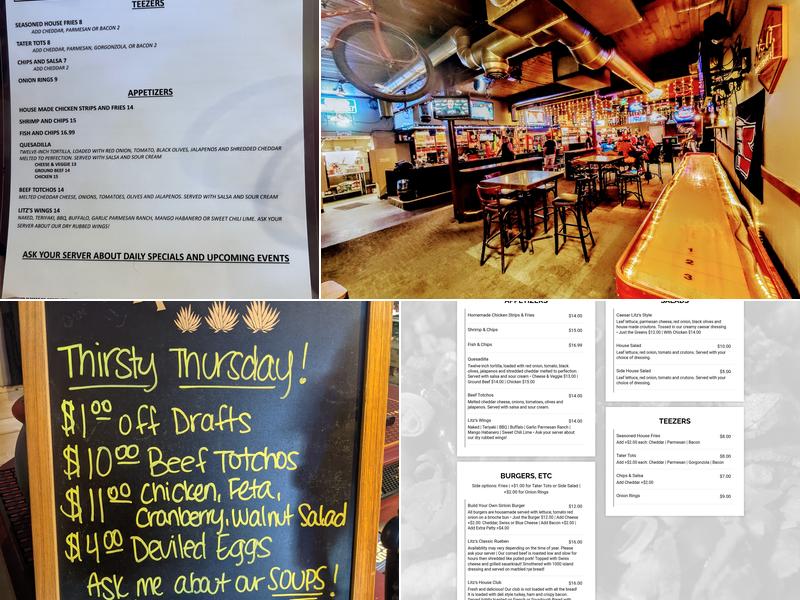 TEEZERS
SEASONED HOUSE FRIES 8
ADD CHEDDAR, PARMESAN OR BACON 2
TATER TOTS 8
ADD CHEDDAR, PARMESAN, GORGONZOLA, OR BACON 2
CHIPS AND SALSA 7
ADD CHEDDAR 2
ONION RINGS 9
APPETIZERS
HOUSE MADE CHICKEN STRIPS AND FRIES 14
SHRIMP AND CHIPS 15
FISH AND CHIPS 16.99
QUESADILLA
TWELVE-INCH TORTILLA, LOADED WITH RED ONION, TOMATO, BLACK OLIVES, JALAPENOS AND SHREDDED CHEDDAR
MELTED TO PERFECTION. SERVED WITH SALSA AND SOUR CREAM
CHEESE & VEGGIE 13
GROUND BEEF 14
CHICKEN 15
BEEF TOTCHOS 14
MELTED CHEDDAR CHEESE, ONIONS, TOMATOES, OLIVES AND JALAPENOS. SERVED WITH SALSA AND SOUR CREAM
LITZ'S WINGS 14
NAKED, TERIYAKI, BBQ, BUFFALO, GARLIC PARMESAN RANCH, MANGO HABANERO OR SWEET CHILI LIME. ASK YOUR
SERVER ABOUT OUR DRY RUBBED WINGS!
ASK YOUR SERVER ABOUT DAILY SPECIALS AND UPCOMING EVENTS
1
2
3
Thirsty Thursday!
$1.00 off Drafts
$10.00 Beef Totchos
$11.00 Chicken, Feta,
Cranberry, Walnut Salad
$4.00 Deviled Eggs
Ask me about our SOUPS!
APPETIZERS
Homemade Chicken Strips & Fries $14.00
Shrimp & Chips $15.00
Fish & Chips $16.99
Quesadilla
Twelve-inch tortilla, loaded with red onion, tomato, black
olives, jalapenos and shredded cheddar melted to perfection.
Served with salsa and sour cream • Cheese & Veggie $13.00 |
Ground Beef $14.00 | Chicken $15.00
Beef Totchos $14.00
Melted cheddar cheese, onions, tomatoes, olives and
jalapenos. Served with salsa and sour cream.
Litz's Wings $14.00
Naked | Teriyaki | BBQ | Buffalo | Garlic Parmesan Ranch |
Mango Habanero | Sweet Chili Lime • Ask your server about
our dry rubbed wings!
BURGERS, ETC
Side options: Fries | +$1.00 for Tater Tots or Side Salad |
+$2.00 for Onion Rings
Build Your Own Sirloin Burger $12.00
All burgers are housemade served with lettuce, tomato red
onion on a brioche bun • Just the Burger $12.00 | Add Cheese
+$2.00: Cheddar, Swiss or Blue Cheese | Add Bacon +$2.00 |
Add Extra Patty +$4.00
Litz's Classic Rueben $16.00
Availability may very depending on the time of year. Please
ask your server | Our corned beef is roasted low and slow for
hours then shredded like pulled pork! Topped with Swiss
cheese and grilled sauerkraut! Smothered with 1000 island
dressing and served on marbled rye bread!
Litz's House Club $16.00
Fresh and delicious! Our club is not loaded with all the bread!
It is loaded with deli style turkey, ham and crispy bacon.
SALADS
Caesar Litz's Style
Leaf lettuce, parmesan cheese, red onion, black olives and
house made croutons. Tossed in our creamy caesar dressing
• Just the Greens $13.00 | With Chicken $14.00
House Salad $10.00
Leaf lettuce, red onion, tomato and crutons. Served with your
choice of dressing.
Side House Salad $5.00
Leaf lettuce, red onion, tomato and crutons. Served with your
choice of dressing.
TEEZERS
Seasoned House Fries $8.00
Add +$2.00 each: Cheddar | Parmesan | Bacon
Tater Tots $8.00
Add +$2.00 each: Cheddar | Parmesan | Gorgonzola | Bacon
Chips & Salsa $7.00
Add Cheddar +$2.00
Onion Rings $9.00